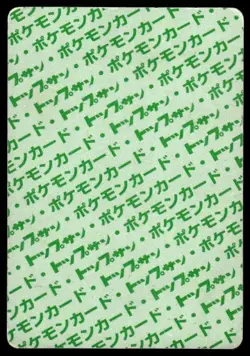 ポケモンカード・トップサン
トップサン・ポケモンカード
ポケモンカード・トップサン・ポケモン
ポケモンカード・トップサン
トップサン・ポケモンカード
ポケモンカード・トップサン・ポケモン
ポケモンカード・トップサン
トップサン・ポケモンカード
ポケモンカード・トップサン・ポケモン
ポケモンカード・トップサン
トップサン・ポケモンカード
ポケモンカード・トップサン
ポケモンカード